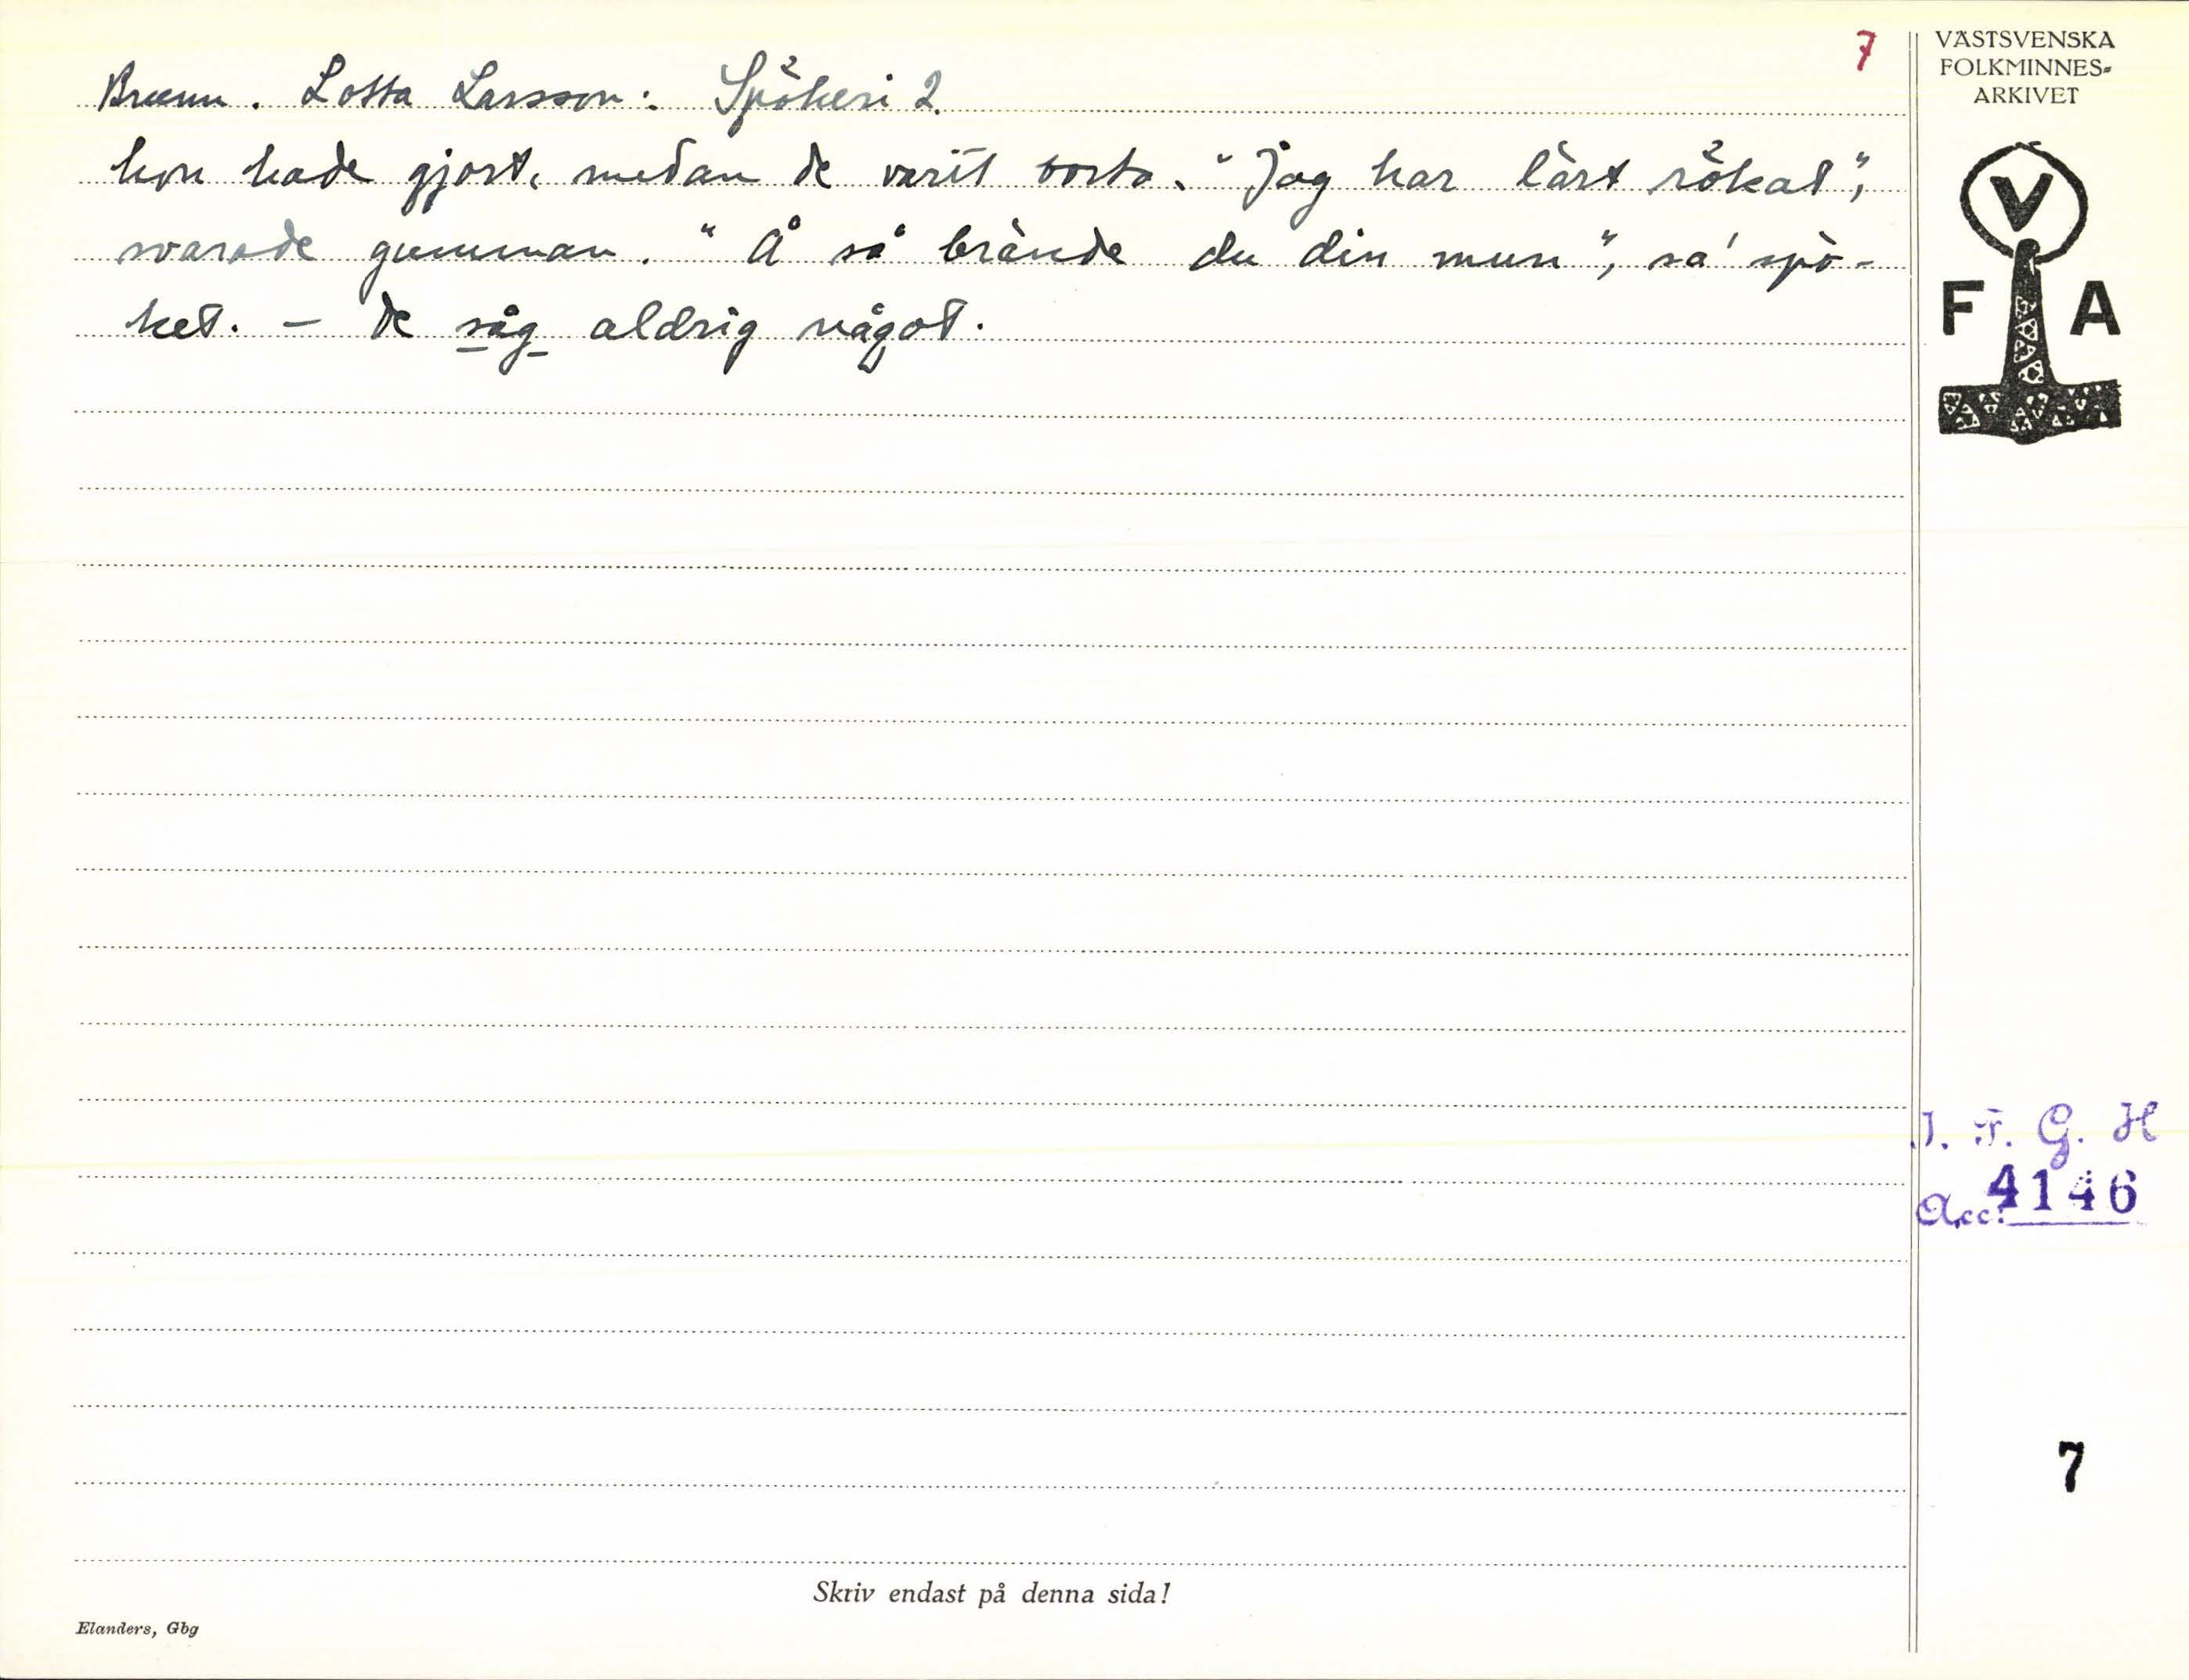 7
Lotta Larsson: Spökeri 2.
hon hade gjort, medan de varit borta. "Jag har lärt rökat",
svarade gumman. "Å så brände du din mun", sa' spö-
ket. - De såg aldrig något.
VÄSTSVENSKA
FOLKMINNES-
ARKIVET
V
F A
I. F. G. H
Acc: 4146
7
Skriv endast på denna sida!
Elanders, Gbg